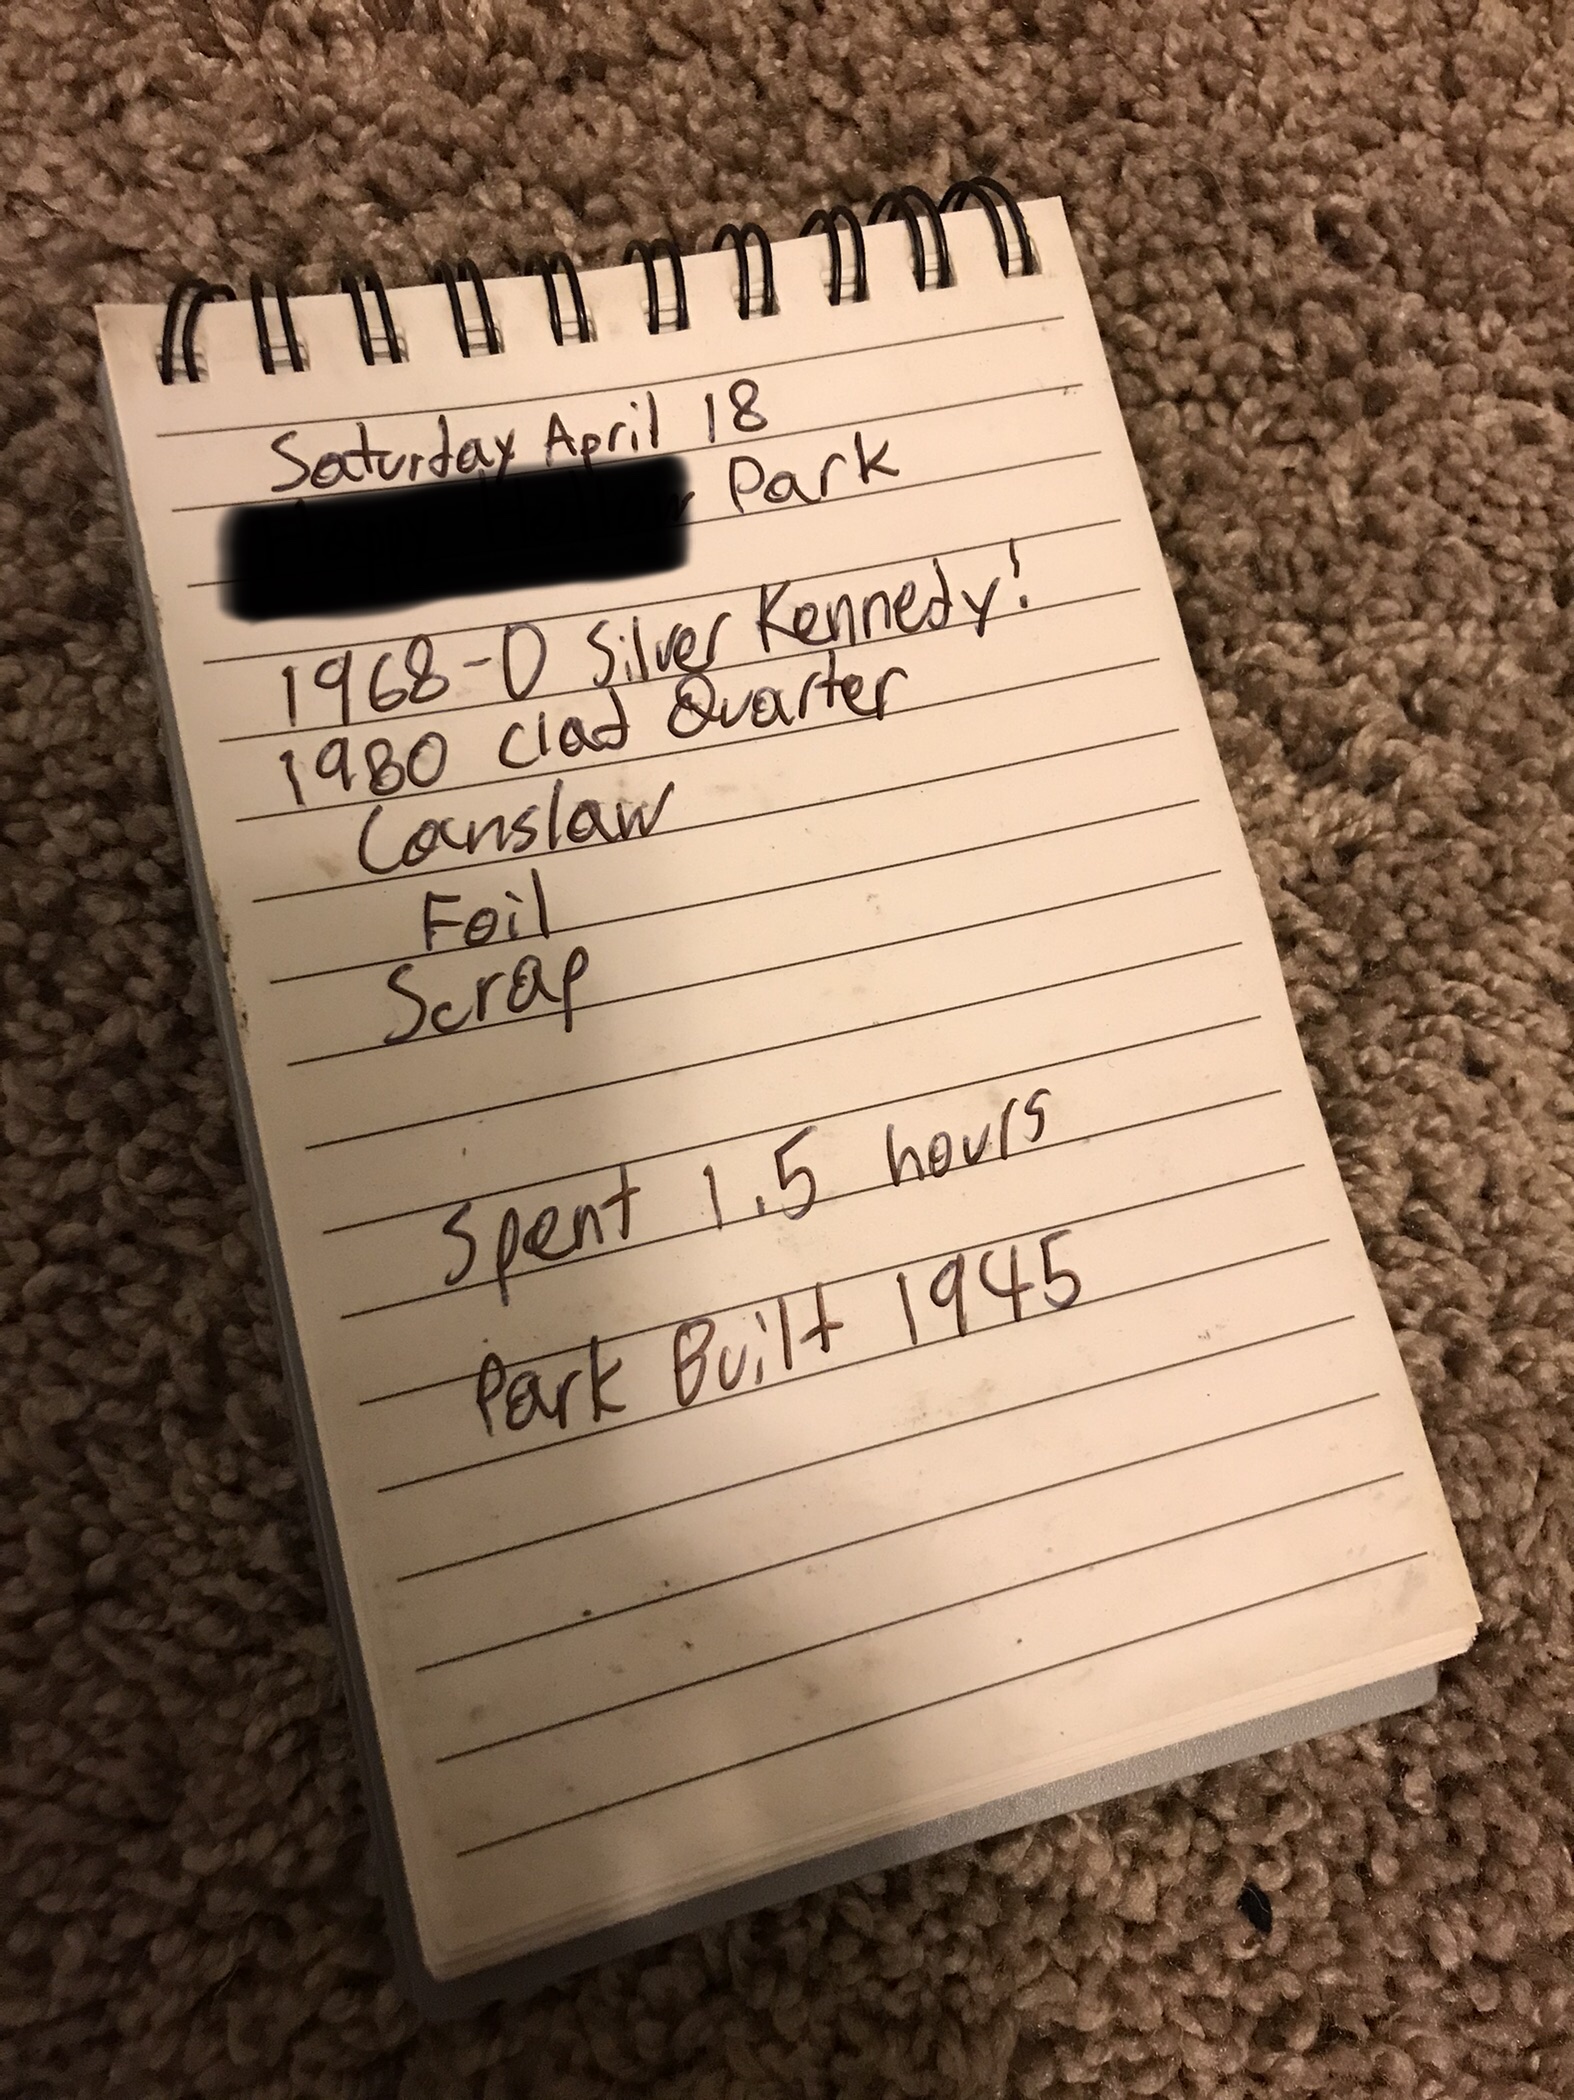 Saturday April 18
Park
1968-D Silver Kennedy!
1980 Clad Quarter
Canslaw
Foil
Scrap
Spent 1.5 hours
Park Built 1945